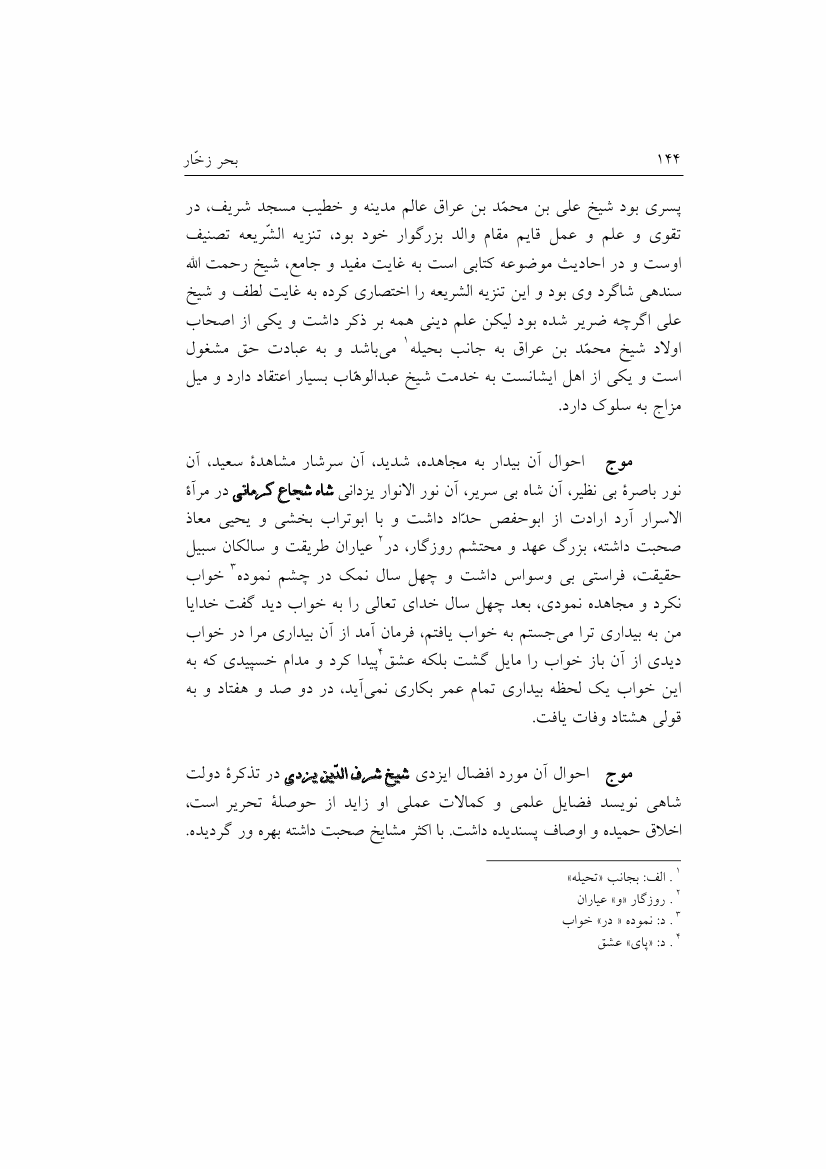 ۱۴۴ بحر زخّار
پسری بود شیخ علی بن محمّد بن عراق عالم مدینه و خطیب مسجد شریف، در
تقوی و علم و عمل قایم مقام والد بزرگوار خود بود، تنزیه الشّریعه تصنیف
اوست و در احادیث موضوعه کتابی است به غایت مفید و جامع، شیخ رحمت الله
سندهی شاگرد وی بود و این تنزیه الشریعه را اختصاری کرده به غایت لطف و شیخ
علی اگرچه ضریر شده بود لیکن علم دینی همه بر ذکر داشت و یکی از اصحاب
اولاد شیخ محمّد بن عراق به جانب بحیله۱ می‌باشد و به عبادت حق مشغول
است و یکی از اهل ایشانست به خدمت شیخ عبدالوهّاب بسیار اعتقاد دارد و میل
مزاج به سلوک دارد.
موج احوال آن بیدار به مجاهده، شدید، آن سرشار مشاهدهٔ سعید، آن
نور باصرهٔ بی نظیر، آن شاه بی سریر، آن نور الانوار یزدانی شاه شجاع کرمانی در مرآة
الاسرار آرد ارادت از ابوحفص حدّاد داشت و با ابوتراب بخشی و یحیی معاذ
صحبت داشته، بزرگ عهد و محتشم روزگار، در۲ عیاران طریقت و سالکان سبیل
حقیقت، فراستی بی وسواس داشت و چهل سال نمک در چشم نموده۳ خواب
نکرد و مجاهده نمودی، بعد چهل سال خدای تعالی را به خواب دید گفت خدایا
من به بیداری ترا می‌جستم به خواب یافتم، فرمان آمد از آن بیداری مرا در خواب
دیدی از آن باز خواب را مایل گشت بلکه عشق۴پیدا کرد و مدام خسپیدی که به
این خواب یک لحظه بیداری تمام عمر بکاری نمی‌آید، در دو صد و هفتاد و به
قولی هشتاد وفات یافت.
موج احوال آن مورد افضال ایزدی شیخ شرف الدّین یزدی در تذکرهٔ دولت
شاهی نویسد فضایل علمی و کمالات عملی او زاید از حوصلهٔ تحریر است،
اخلاق حمیده و اوصاف پسندیده داشت. با اکثر مشایخ صحبت داشته بهره ور گردیده.
۱. الف: بجانب «تحیله»
۲. روزگار «و» عیاران
۳. د: نموده « در» خواب
۴. د: «پای» عشق